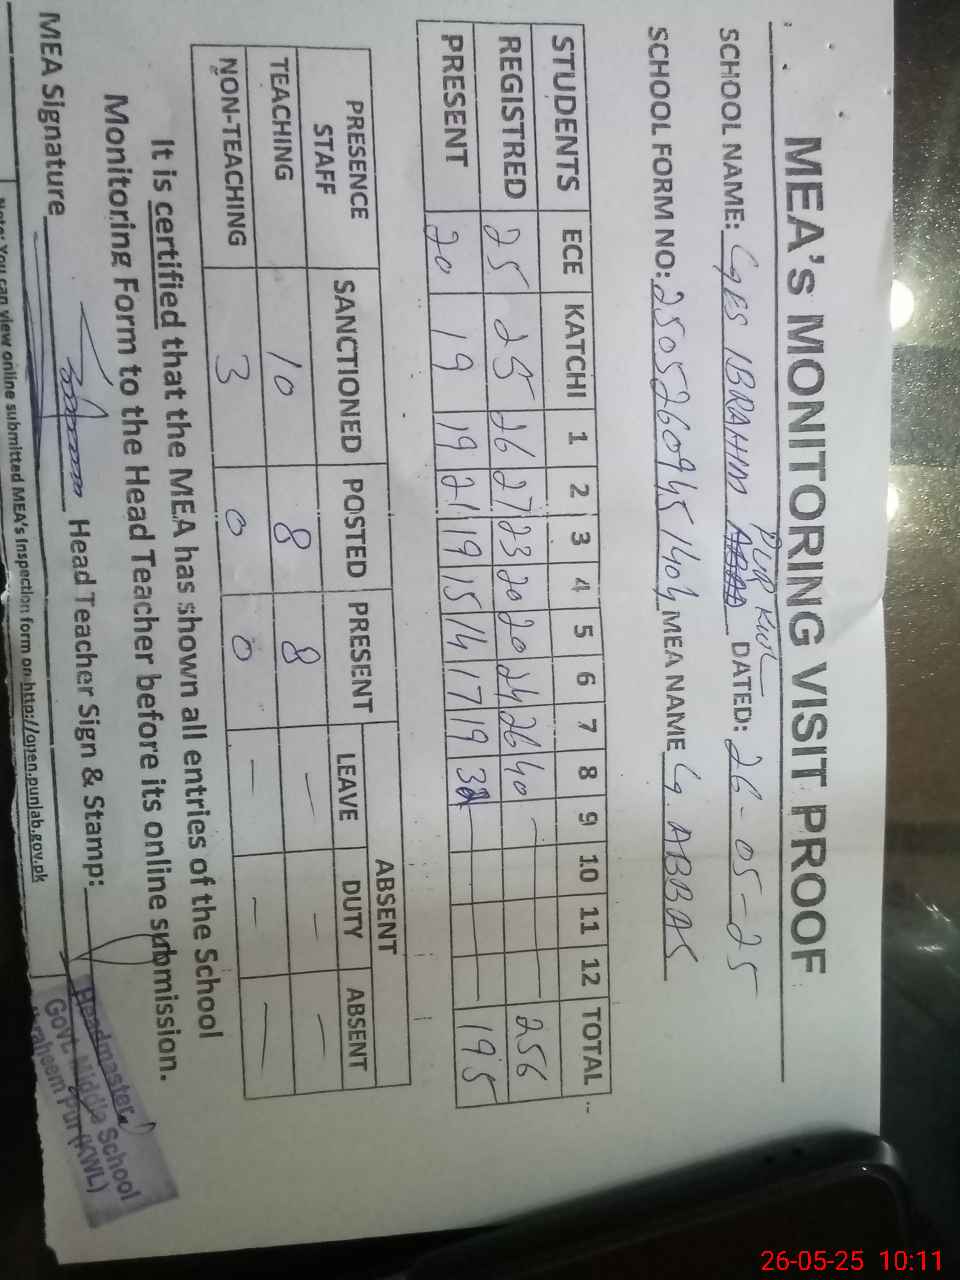 MEA's MONITORING VISIT PROOF
SCHOOL NAME: GES IBRAHIM PUR KWL DATED: 26-05-25
SCHOOL FORM NO: MEA NAME G. ABBAS
STUDENTS ECE KATCHI 1 2 3 4 5 6 7 8 9 10 11 12 TOTAL
REGISTRED 25 25 26 27 23 20 20 24 26 40 - 256
PRESENT 20 19 19 21 19 15 14 17 19 32 195
PRESENCE STAFF SANCTIONED POSTED PRESENT ABSENT
LEAVE DUTY ABSENT
TEACHING 10 8 8 - - -
NON-TEACHING 3 0 0 - - -
It is certified that the MEA has shown all entries of the School
Monitoring Form to the Head Teacher before its online submission.
MEA Signature Head Teacher Sign & Stamp:
Headmaster
Govt. Middle School
Ibraheem Pur (KWL)
Note: You can view online submitted MEA's inspection form on http://open.punjab.gov.pk
26-05-25 10:11